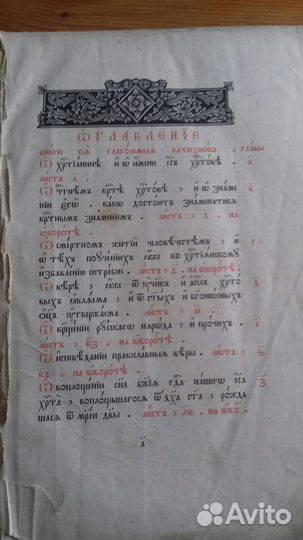 Ѡ҆ГЛАВЛЕ́НЇЕ
книги сея̀ глаго́лемыѧ катихи́зиса . главы̀
Ѡ҆ хр҃тїа́нинѣ и҆ ѡ҆ и҆́мени і҆с҃ъ хр҃то́вѣ . а҃
ли́стъ а҃ .
Ѡ҆ чт҃нѣ́мъ кр҃тѣ̀ хр҃то́вѣ , и҆ ѡ҆ зна́ме
нїи є҆гѡ̀ . ка́кѡ досто́итъ зна́менатисѧ
кр҃тнымъ зна́менїемъ . ли́стъ , д҃ . на
ѡ҆боро́тѣ .
Ѡ҆ сме́ртномъ житїѝ человѣ́честѣмъ , и҆ г҃
ѡ҆ тѣ́хъ поуче́нїихъ ꙗ҆́же ко хр҃тїа́нскому
и҆збавле́нїю потре́бни . ли́стъ , на ѡ҆боро́тѣ .
Ѡ҆ вѣ́рѣ , ꙗ҆́же ѿ и҆ а҆пл҃ъ хр҃то́
выхъ ꙗ҆вле́на , и҆ ѿ ст҃ы́хъ и҆ бг҃оно́сныхъ
ѻ҆ц҃ъ ᲂу҆твержа́ема . ли́стъ ,
Ѡ҆ кр҃ще́нїи ру́сскагѡ наро́да , и҆ про́чихъ .
ли́стъ , к҃з . на ѡ҆боро́тѣ .
Ѡ҆ и҆сповѣ́данїи правосла́вныѧ вѣ́ры . ли́стъ ,
на ѡ҆боро́тѣ .
Ѡ҆ воплоще́нїи сн҃а бж҃їѧ гд҃а на́шегѡ і҆с҃а з҃
хр҃та̀ , воплоща́шагосѧ ѿ дх҃а ст҃а , ро́ждь
шасѧ ѿ мр҃і́и дв҃ы . ли́стъ , л҃е . на ѡ҆бо́ .
а҃
Avito